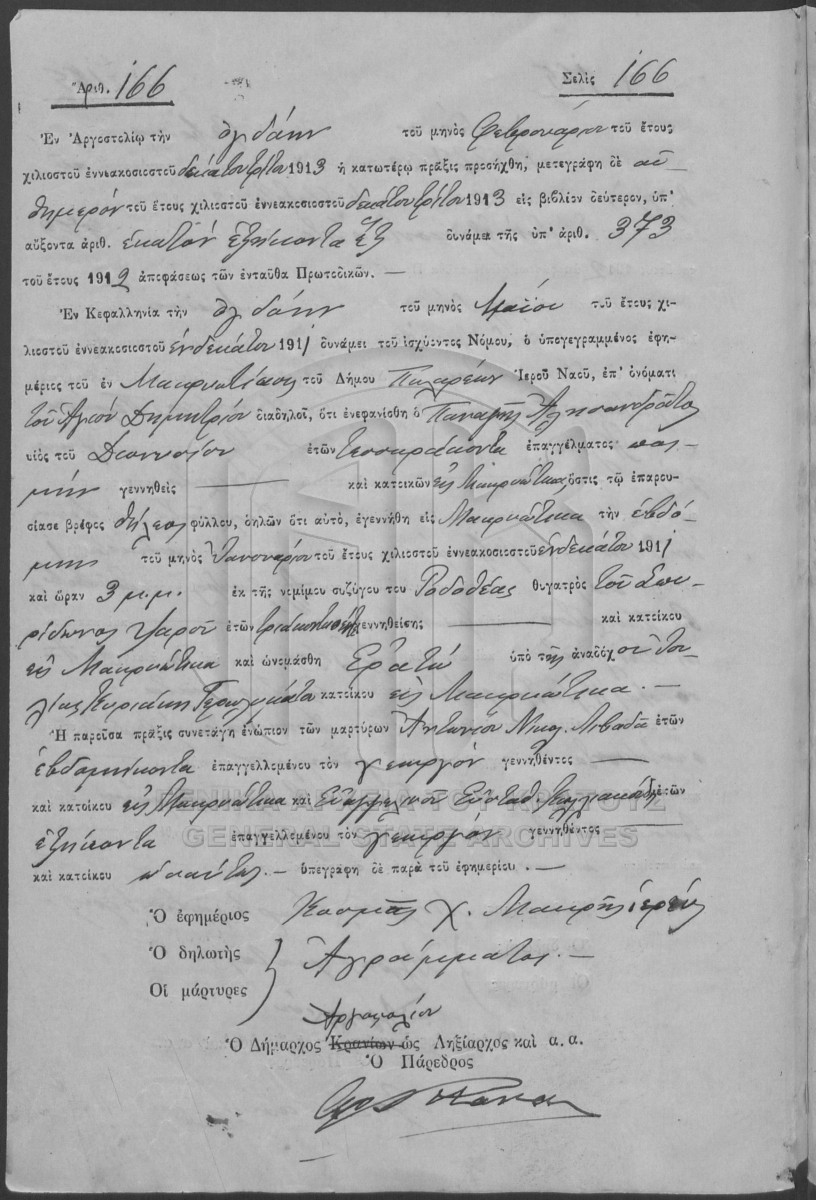 Ἀριθ. 166
Σελὶς 166
Ἐν Ἀργοστολίῳ τὴν ὀγδόην τοῦ μηνὸς Φεβρουαρίου τοῦ ἔτους
χιλιοστοῦ ἐννεακοσιοστοῦ δεκάτου τρίτου 1913 ἡ κατωτέρω πρᾶξις προσήχθη, μετεγράφη δὲ αὐ-
θημερὸν τοῦ ἔτους χιλιοστοῦ ἐννεακοσιοστοῦ δεκάτου τρίτου 1913 εἰς βιβλίον δεύτερον, ὑπ'
αὔξοντα ἀριθ. ἑκατὸν ἑξήκοντα ἓξ δυνάμει τῆς ὑπ' ἀριθ. 373
τοῦ ἔτους 1912 ἀποφάσεως τῶν ἐνταῦθα Πρωτοδικῶν. —
Ἐν Κεφαλληνίᾳ τὴν ὀγδόην τοῦ μηνὸς Μαΐου τοῦ ἔτους χι-
λιοστοῦ ἐννεακοσιοστοῦ ἑνδεκάτου 1911 δυνάμει τοῦ ἰσχύοντος Νόμου, ὁ ὑπογεγραμμένος ἐφη-
μέριος τοῦ ἐν τοῦ Δήμου Παλαρέων Ἱεροῦ Ναοῦ, ἐπ' ὀνόματι
τοῦ Ἁγίου Δημητρίου διαδηλοῖ, ὅτι ἐνεφανίσθη ὁ Παναγῆς Ἀλησανδρᾶτος
υἱὸς τοῦ Διονυσίου ἐτῶν τεσσαράκοντα ἐπαγγέλματος ποι-
μὴν γεννηθεὶς — καὶ κατοικῶν εἰς Μακρυώτικα ὅστις τῷ ἐπαρου-
σίασε βρέφος θήλεος φύλλου, δηλῶν ὅτι αὐτὸ, ἐγεννήθη εἰς Μακρυώτικα τὴν ἑβδό-
μην τοῦ μηνὸς Ἰανουαρίου τοῦ ἔτους χιλιοστοῦ ἐννεακοσιοστοῦ ἑνδεκάτου 1911
καὶ ὥραν 3 μ.μ. ἐκ τῆς νομίμου συζύγου του Ροδοθέας θυγατρὸς τοῦ Σπυ-
ρίδωνος Ψαροῦ ἐτῶν γεννηθείσης — καὶ κατοίκου
εἰς Μακρυώτικα καὶ ὠνομάσθη Ἐρατώ ὑπὸ τῆς ἀναδόχου Ἰου-
λίας κατοίκου εἰς Μακρυώτικα. —
Ἡ παροῦσα πρᾶξις συνετάγη ἐνώπιον τῶν μαρτύρων Ἀντωνίου Νικολ. Λιβαδᾶ ἐτῶν
ἑβδομήκοντα ἐπαγγελλομένου τὸν γεωργόν γεννηθέντος —
καὶ κατοίκου εἰς Μακρυώτικα καὶ Εὐαγγελινοῦ Εὐσταθ. ἐτῶν
ἑξήκοντα ἐπαγγελλομένου τὸν γεωργόν γεννηθέντος —
καὶ κατοίκου ὡσαύτως. — ὑπεγράφη δὲ παρὰ τοῦ ἐφημερίου. —
Ὁ ἐφημέριος Κοσμᾶς Χ. Μακρῆς ἱερεύς
Ὁ δηλωτὴς
Οἱ μάρτυρες
Ἀγράμματοι. —
Ἀργοστολίου
Ὁ Δήμαρχος Κρανίων ὡς Ληξίαρχος καὶ α. α.
Ὁ Πάρεδρος
ΓΕΝΙΚΑ ΑΡΧΕΙΑ ΤΟΥ ΚΡΑΤΟΥΣ
GENERAL STATE ARCHIVES